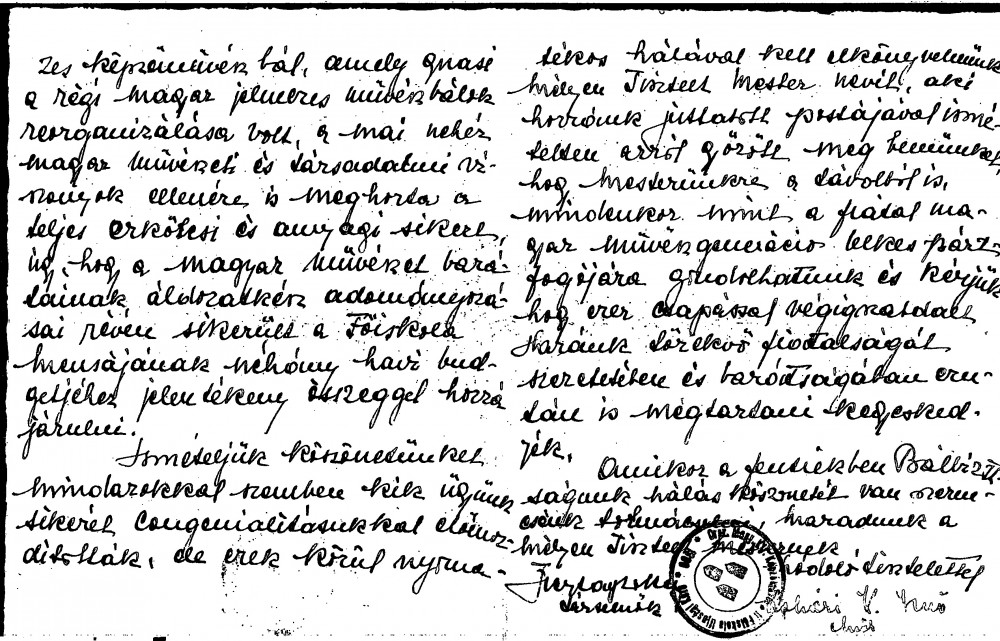 zes képzőművész bál, amely quasi
a régi magyar jelmezes művészbálok
reorganizálása volt, a mai nehéz
magyar művészeti és társadalmi vi-
szonyok ellenére is meghozta a
teljes erkölcsi és anyagi sikert,
úgy, hogy a magyar művészet bará-
tainak áldozatkész adományozá-
sai révén sikerült a Főiskola
mensájának néhány havi bud-
getjéhez jelentékeny összeggel hozzá
járulni.
Ismételjük köszönetünket
mindazokkal szemben kik ügyünk
sikerét congenialitásukkal előmoz-
dították, de ezek körül nyoma-
tékos hálával kell elkönyvelnünk
mélyen Tisztelt Mester nevét, aki
hozzánk juttatott postájával ismé-
telten arról győzött meg bennünket,
hogy Mesterünkre a távolból is,
mindenkor mint a fiatal ma-
gyar művészgeneráció lelkes párt-
fogójára gondolhatunk és kérjük
hogy ezer csapással végigkaszdált
Hazánk törekvő fiatalságát
szeretetében és barátságában ezu-
tán is megtartani kegyesked-
jék.
Amikor a fentiekben Bálbizott
ságunk hálás köszönetét van szeren-
csénk tolmácsolni, maradunk a
mélyen Tisztelt Mesternek
hódoló tisztelettel